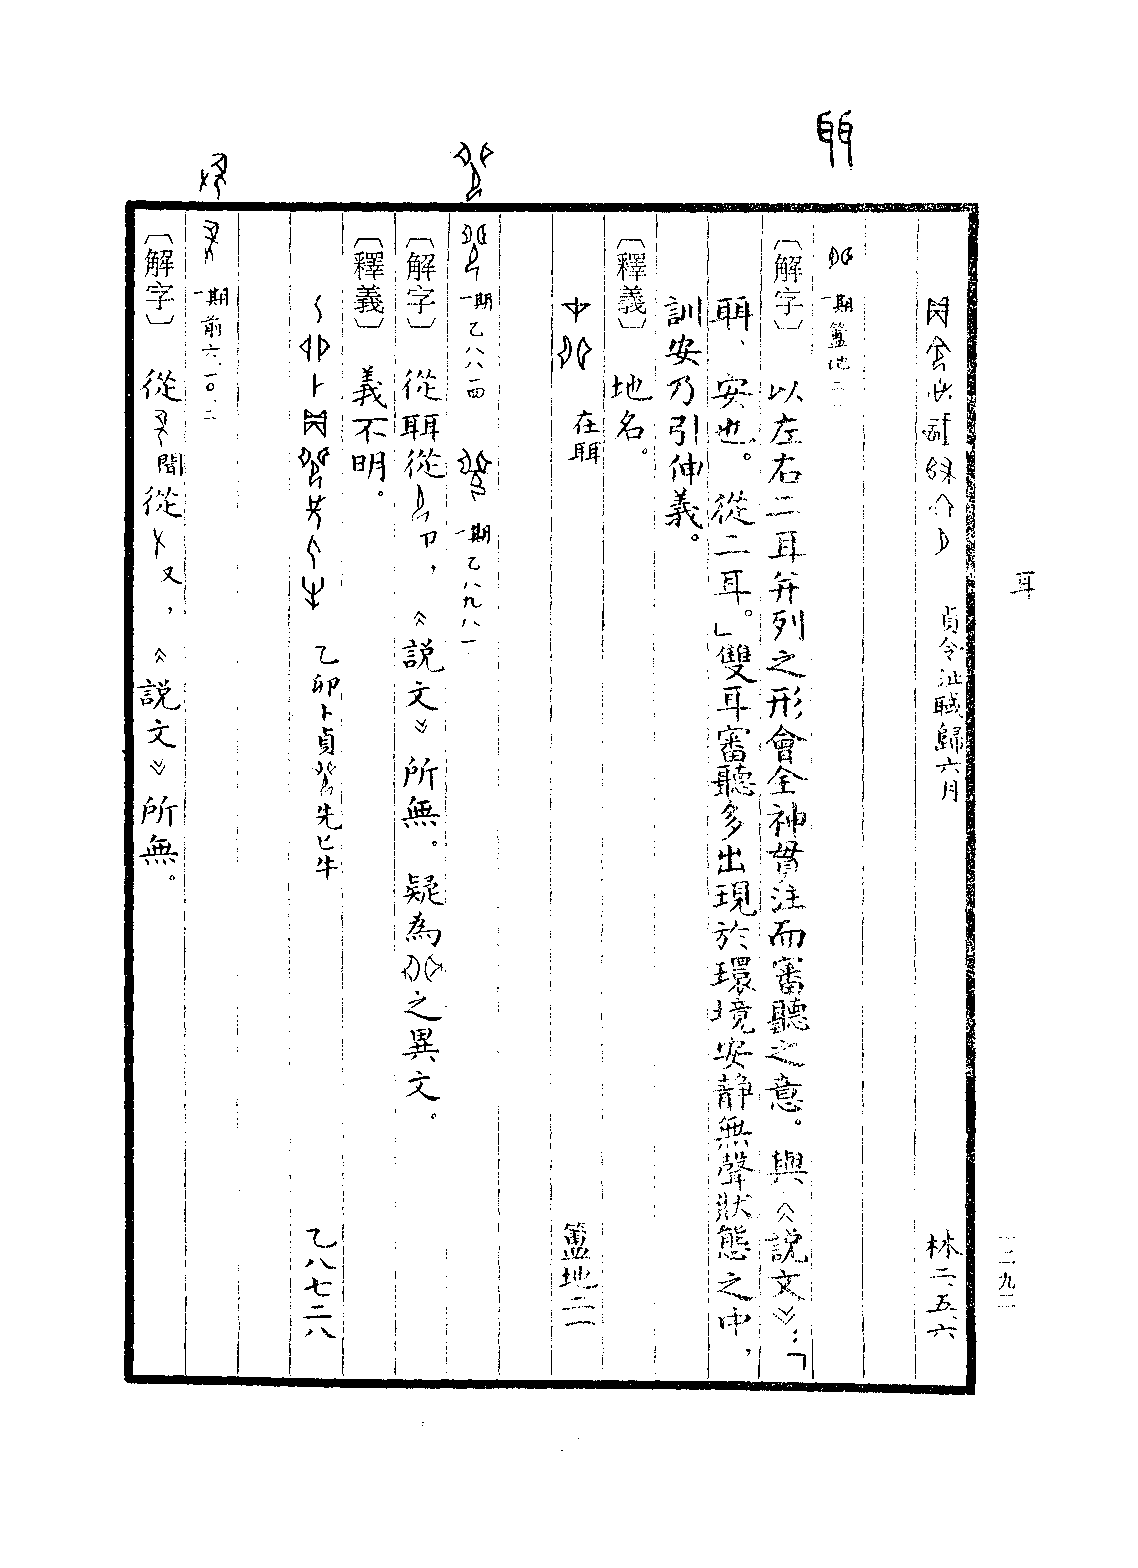 耳
一二九二
貞令沚聝歸六月 林二、五、六
一期簠地二一
〔解字〕 以左右二耳并列之形會全神貫注而審聽之意。與《說文》：「
聑，安也。從二耳。」雙耳審聽多出現於環境安靜無聲狀態之中，
訓安乃引伸義。
〔釋義〕 地名。
在聑 簠地二一
一期乙八八一四 一期乙八九八一
〔解字〕 從聑從卩，《說文》所無。疑為之異文。
〔釋義〕 義不明。
乙卯卜貞先匕牛 乙八七二八
一期前六、一〇、二
〔解字〕 從聞從又，《說文》所無。